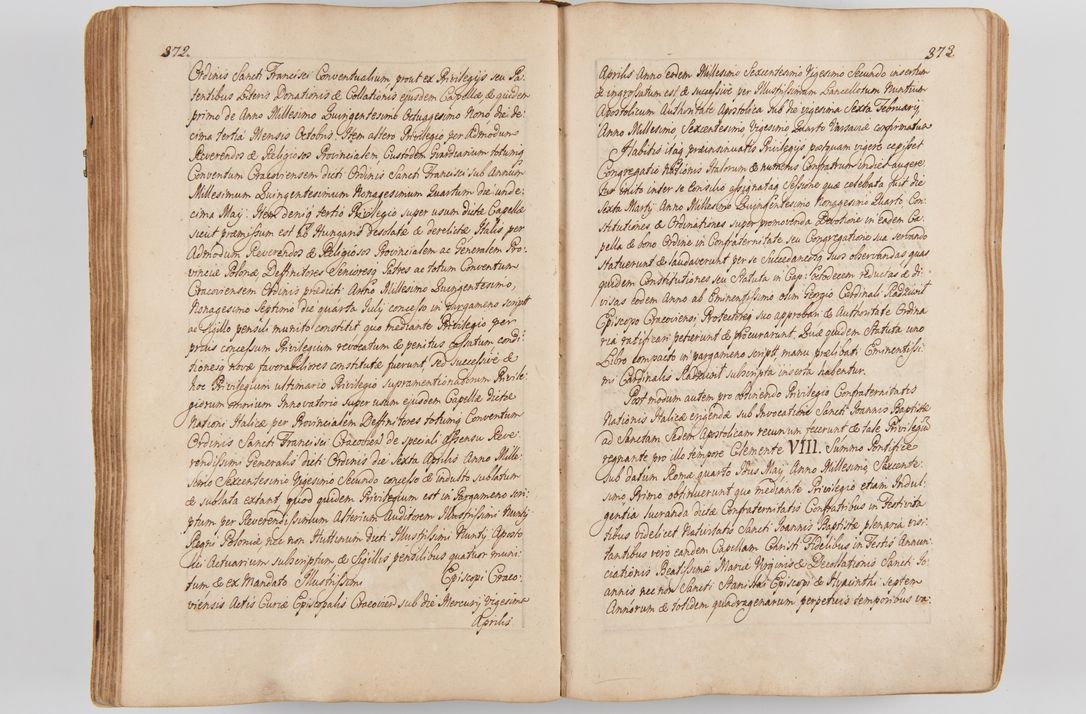 372.
Ordinis Sancti Francisci Conventualium prout ex Privilegijs seu Pa-
tentibus Literis Donationis & Collationis ejusdem Capellæ & quidem
primo de Anno Millesimo Quingentesimo Octuagesimo Nono die de-
cima tertia Mensis Octobris, Item altero Privilegio per Admodum
Reverendos & Religiosos Provincialem Custodem Guardianum totumq
Conventum Cracoviensem dicti Ordinis Sancti Francisci sub Annum
Millesimum Quingentesimum Nonagesimum Quartum die unde-
cima Maij. Item deniq tertio Privilegio super usum dictæ Capellæ
sicut præmissum est Hungaris desolatæ & derelictæ Italis per
Admodum Reverendos & Religiosos Provincialem ac Generalem Pro-
vinciæ Polonæ Deffinitores Senioresq Patres ac totum Conventum
Cracoviensem Ordinis prædicti Anno Millesimo Quingentesimo,
Nonagesimo Septimo die quarta Julij concesso in pargameno script
ac Sigillo pensili munito constitit quo mediante Privilegio per
prius concessum Privilegium revocatum & penitus cassatum condi-
tionesq novæ favorabiliores constitutæ fuerunt, sed successive &
hoc Privilegium ultimario Privilegio supramentionatorum Privile-
giorum omnium Innovatorio super usum ejusdem Capellæ dictæ
Nationi Italicæ per Provincialem Deffinitores totumq Conventum
Ordinis Sancti Francisci Cracovien de speciali assensu Reve-
rendissimi Generalis dicti Ordinis die Sexta Aprilis Anno Mille-
simo Sexcentesimo Vigesimo Secundo concesso & indulto sublatum
& sublata extant, quod quidem Privilegium est in Pargameno scri-
ptum per Reverendissimum Alterium Auditorem Illustrissimi Nuntij
Regni Poloniæ nec non Huttinum dicti Illustrissimi Nuntij Aposto-
lici Actuarium subscriptum & Sigillis pensilibus quatuor muni-
tum & ex Mandato Illustrissimi Episcopi Craco-
viensis Actis Curiæ Episcopalis Cracovien sub die Mercurij Vigesima
Aprilis
373
Aprilis Anno eodem Millesimo Sexcentesimo Vigesimo Secundo insertum
& ingrossatum est & successive per Illustrissimum Lancellotum Nuntium
Apostolicum Authoritate Apostolica sub die vigesima Sexta Februarij
Anno Millesimo Sexcentesimo Vigesimo Quarto Varsaviæ confirmatum
Habitis itaq præinsinuatis Privilegijs postquam vigere cæpisset
Congregatio nationis Italorum & numerus Confratrum indies augere-
tur inito inter se Consilio assignataq Sessione quæ celebrata fuit die
Sexta Martij Anno Millesimo Quingentesimo Nonagesimo Quarto Con-
stitutiones & Ordinationes super promovenda Devotione in eadem Ca-
pella & bono Ordine in Confraternitate seu Congregatione sua servando
statuerunt & laudaverunt per se Succedaneosq suos observandas quas
quidem Constitutiones seu Statuta in Cap: Octodecem redactas & di-
visas eodem Anno ab Eminentissimo olim Georgio Cardinali Radziwit
Episcopo Cracoviensi Protectoreq suo approbari & Authoritate Ordina-
rea ratificari petierunt & procurarunt. Quæ quidem Statuta uno
Libro compacto in pargameno script manu prælibati Eminentissi-
mi Cardinalis Radziwit subscripta inserta habentur.
Post modum autem pro obtinendo Privilegio Confraternitatis
Nationis Italicæ erigendæ sub Invocatione Sancti Joannis Baptistæ
ad Sanctam Sedem Apostolicam recursum fecerunt & tale Privilegiu
regnante pro illo tempore Clemente VIII. Summo Pontifice
sub datum Romæ quarto Idus Maij Anno Millesimo Sexcente-
simo Primo obtinuerunt quo mediante Privilegio etiam Indul-
gentia lucranda dictæ Confraternitatis Confratribus in Festivita-
tibus videlicet Nativitatis Sancti Joannis Baptistæ plenaria visi-
tantibus vero eandem Capellam Christi Fidelibus in Festis Annun-
ciationis Beatissimæ Mariæ Virginis & Decollationis Sancti Jo-
annis nec non Sancti Stanislai Episcopi & Hyacinthi Septem
Annorum & totidem quadragenarum perpetuis temporibus va-